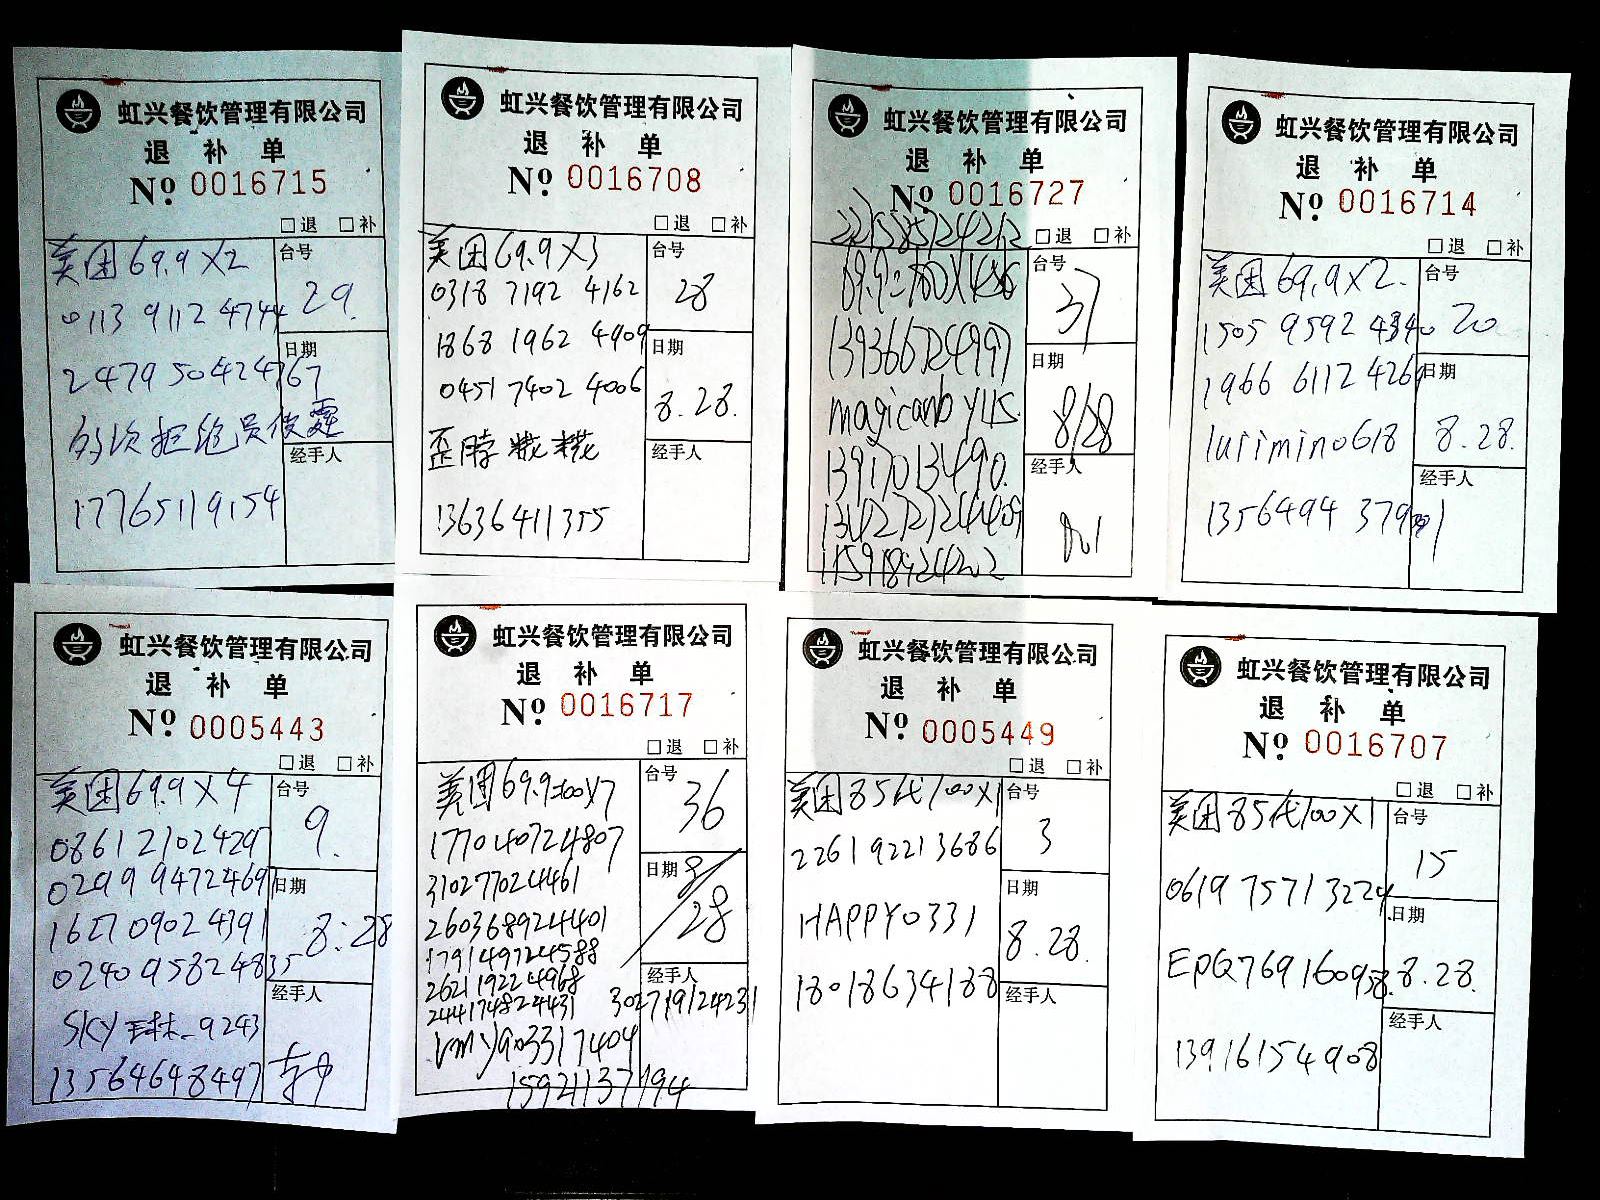 虹兴餐饮管理有限公司
退 补 单
№ 0016715
□退 □补
美团69.9×2
台号
29.
0113 9112 4744
日期
2479 50424767
多次拒绝吴俊霆
经手人
17765119154
虹兴餐饮管理有限公司
退 补 单
№ 0016708
□退 □补
美团69.9×3
台号
28
0318 7192 4162
1868 1962 4909
日期
0451 7402 4006
8.28.
歪脖
经手人
13636411355
虹兴餐饮管理有限公司
退 补 单
№ 0016727
□退 □补
台号
37
日期
8/28
139366724997
13917013490.
经手人
虹兴餐饮管理有限公司
退 补 单
№ 0016714
□退 □补
美团69.9×2.
台号
20
1505 9592 4340
1966 6112 4269
日期
lurimino618
8.28.
经手人
虹兴餐饮管理有限公司
退 补 单
№ 0005443
□退 □补
美团69.9×4
台号
9.
08612102429
02999472469
日期
1627 0902 4391
8.28
0240 9582 4835
经手人
13564648497
虹兴餐饮管理有限公司
退 补 单
№ 0016717
□退 □补
美团69.9=100×7
台号
36
177040724807
日期
8/28
310277024461
260368924401
179149724588
262119224968
经手人
244174824431 302719124231
15921137194
虹兴餐饮管理有限公司
退 补 单
№ 0005449
□退 □补
美团85代100×1
台号
3
2261 9221 3686
日期
HAPPY0331
8.28.
18018634188
经手人
虹兴餐饮管理有限公司
退 补 单
№ 0016707
□退 □补
美团85代100×1
台号
15
0619 7571 3224
日期
EPQ769160958.
8.28.
经手人
13916154908